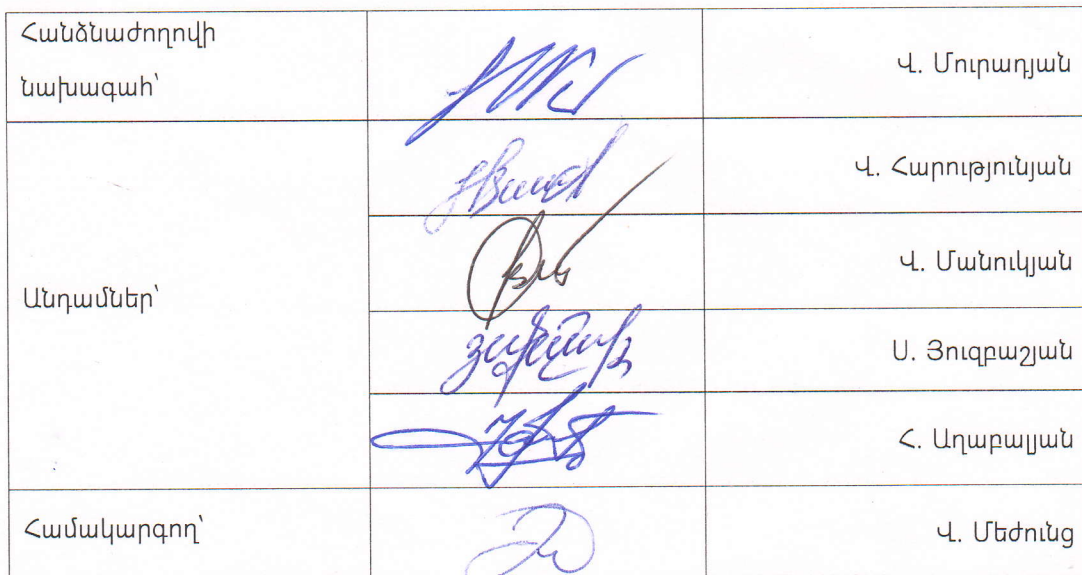 Հանձնաժողովի
նախագահ՝
Վ. Մուրադյան
Վ. Հարությունյան
Վ. Մանուկյան
Անդամներ՝
Ս. Յուզբաշյան
Հ. Աղաբալյան
Համակարգող՝
Վ. Մեժունց